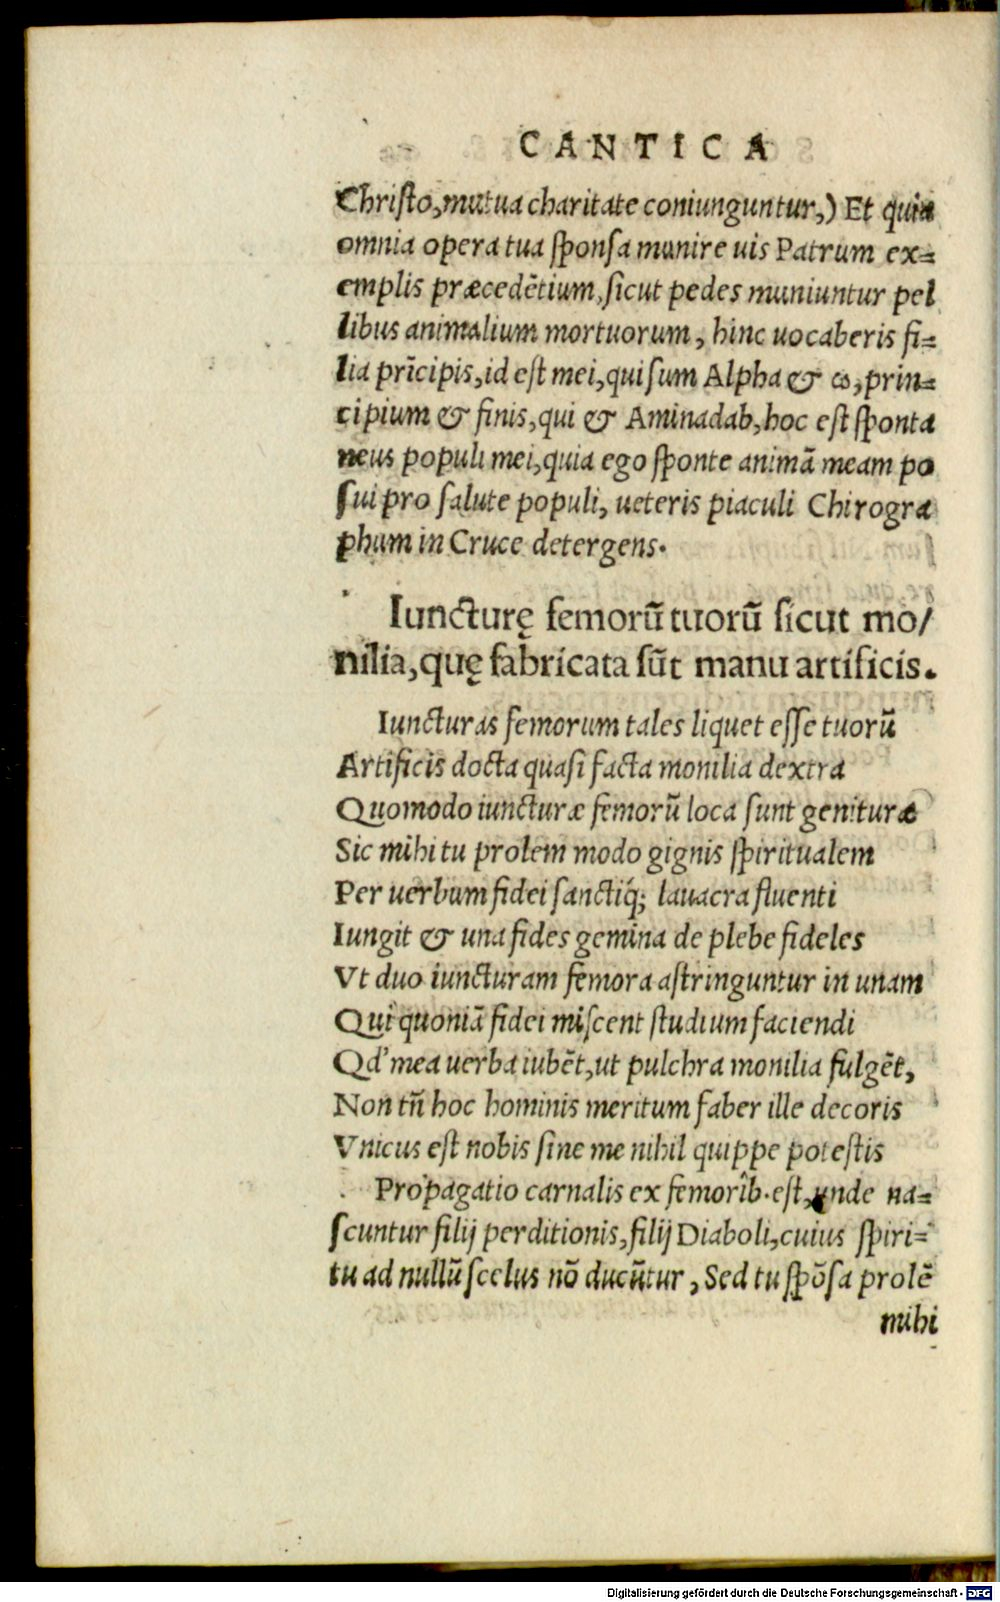 CANTICA
Christo, mutua charitate coniunguntur,) Et quia
omnia opera tua sponsa munire uis Patrum ex=
emplis præcedẽtium, sicut pedes muniuntur pel
libus animalium mortuorum, hinc uocaberis fi=
lia prĩcipis, id est mei, qui sum Alpha & ω, prin=
cipium & finis, qui & Aminadab, hoc est sponta
neus populi mei, quia ego sponte animã meam po
sui pro salute populi, ueteris piaculi Chirogra
phum in Cruce detergens.
Iuncturę femorũ tuorũ sicut mo/
nilia, quę fabricata sũt manu artificis.
Iuncturas femorum tales liquet esse tuorũ
Artificis docta quasi facta monilia dextra
Quomodo iuncturæ femorũ loca sunt genituræ
Sic mihi tu prolem modo gignis spiritualem
Per uerbum fidei sanctiq́; lauacra fluenti
Iungit & una fides gemina de plebe fideles
Vt duo iuncturam femora astringuntur in unam
Qui quoniã fidei miscent studium faciendi
Qd' mea uerba iubẽt, ut pulchra monilia fulgẽt,
Non tñ hoc hominis meritum faber ille decoris
Vnicus est nobis sine me nihil quippe potestis
Propagatio carnalis ex femorib. est, unde na=
scuntur filij perditionis, filij Diaboli, cuius spiri=
tu ad nullũ scelus nõ ducũtur, Sed tu spõsa prolẽ
mihi
Digitalisierung gefördert durch die Deutsche Forschungsgemeinschaft - DFG